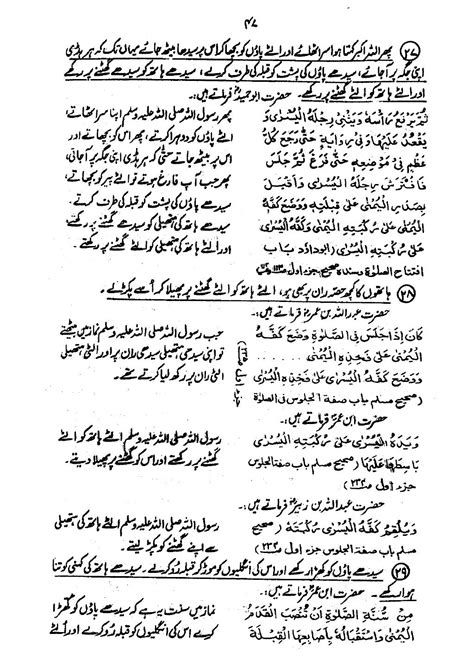 ۴۷
(۲۷) پھر اللہ اکبر کہتا ہوا سر اٹھائے اور الٹے پاؤں کو بچھا کر اس پر سیدھا بیٹھ جائے یہاں تک کہ ہر ہڈی
اپنی جگہ پر آجائے، سیدھے پاؤں کی پشت کو قبلہ کی طرف کرے، سیدھے ہاتھ کو سیدھے گھٹنے پر رکھے
اور الٹے ہاتھ کو الٹے گھٹنے پر رکھے۔ حضرت ابو حمیدؓ فرماتے ہیں:۔
ثُمَّ يَرْفَعُ رَأْسَهُ وَيَثْنِي رِجْلَهُ الْيُسْرٰى وَ
يَقْعُدُ عَلَيْهَا وَفِي رِوَايَةٍ حَتّٰى رَجَعَ كُلُّ
عَظْمٍ فِي مَوْضِعِهٖ حَتّٰى فَرَغَ ثُمَّ جَلَسَ
فَافْتَرَشَ رِجْلَهُ الْيُسْرٰى وَاَقْبَلَ
بِصَدْرِ الْيُمْنٰى عَلٰى قِبْلَتِهٖ وَوَضَعَ كَفَّهُ
الْيُمْنٰى عَلٰى رُكْبَتِهِ الْيُمْنٰى وَكَفَّهُ الْيُسْرٰى
عَلٰى رُكْبَتِهِ الْيُسْرٰى (ابوداؤد باب
افتتاح الصلوٰة وسندہ صحیح جزء اول
پھر رسول اللہ صلی اللہ علیہ وسلم اپنا سر اٹھاتے،
الٹے پاؤں کو دوہرا کرتے، پھر اس کو بچھاتے اور
اس پر بیٹھ جاتے حتّٰی کہ ہر ہڈی اپنی جگہ پر آجاتی،
پھر جب آپ فارغ ہوتے تو الٹے پیر کو بچھاتے،
سیدھے پاؤں کی پشت کو قبلہ کی طرف کرتے۔
سیدھے ہاتھ کی ہتھیلی کو سیدھے گھٹنے پر رکھتے
اور الٹے ہاتھ کی ہتھیلی کو الٹے گھٹنے پر رکھتے۔
(۲۸) ہاتھوں کا کچھ حصہ ران پر بھی ہو، الٹے ہاتھ کو الٹے گھٹنے پر پھیلا کر اُسے پکڑ لے۔
حضرت عبداللہ بن عمرؓ فرماتے ہیں:۔
كَانَ اِذَا جَلَسَ فِي الصَّلٰوةِ وَضَعَ كَفَّهُ
الْيُمْنٰى عَلٰى فَخِذِهِ الْيُمْنٰى . . . . . .
وَوَضَعَ كَفَّهُ الْيُسْرٰى عَلٰى فَخِذِهِ الْيُسْرٰى
(صحیح مسلم باب صفة الجلوس فی الصلوٰة
جب رسول اللہ صلی اللہ علیہ وسلم نماز میں بیٹھتے
تو اپنی سیدھی ہتھیلی سیدھی ران پر اور الٹی ہتھیلی
الٹی ران پر رکھ لیا کرتے تھے۔
حضرت ابن عمرؓ فرماتے ہیں:۔
وَيَدَهُ الْيُسْرٰى عَلٰى رُكْبَتِهِ الْيُسْرٰى
بَاسِطَهَا عَلَيْهَا (صحیح مسلم باب صفة الجلوس
جزء اول
رسول اللہ صلی اللہ علیہ وسلم الٹے ہاتھ کو الٹے
گھٹنے پر رکھتے اور اس کو گھٹنے پر پھیلا دیتے۔
حضرت عبداللہ بن زبیرؓ فرماتے ہیں:۔
وَيُلْقِمُ كَفَّهُ الْيُسْرٰى رُكْبَتَهُ (صحیح
مسلم باب صفة الجلوس جزء اول
رسول اللہ صلی اللہ علیہ وسلم الٹے ہاتھ کی ہتھیلی
سے اپنے گھٹنے کو پکڑ لیتے۔
(۲۹) سیدھے پاؤں کو کھڑا رکھے اور اس کی انگلیوں کو موڑ کر قبلہ رُو کرے۔ سیدھے ہاتھ کی کہنی کو تنا
ہوا رکھے۔ حضرت ابن عمرؓ فرماتے ہیں:۔
مِنْ سُنَّةِ الصَّلٰوةِ اَنْ تَنْصِبَ الْقَدَمَ
الْيُمْنٰى وَاسْتِقْبَالُهُ بِاَصَابِعِهَا الْقِبْلَةَ
نماز میں سنت یہ ہے کہ سیدھے پاؤں کو کھڑا
کرے اس کی انگلیوں کو قبلہ رُو کرے اور الٹے